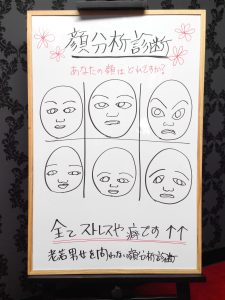 顔分析診断
あなたの顔は、どれですか?
全てストレスや病です↑↑
老若男女を問わない顔分析診断